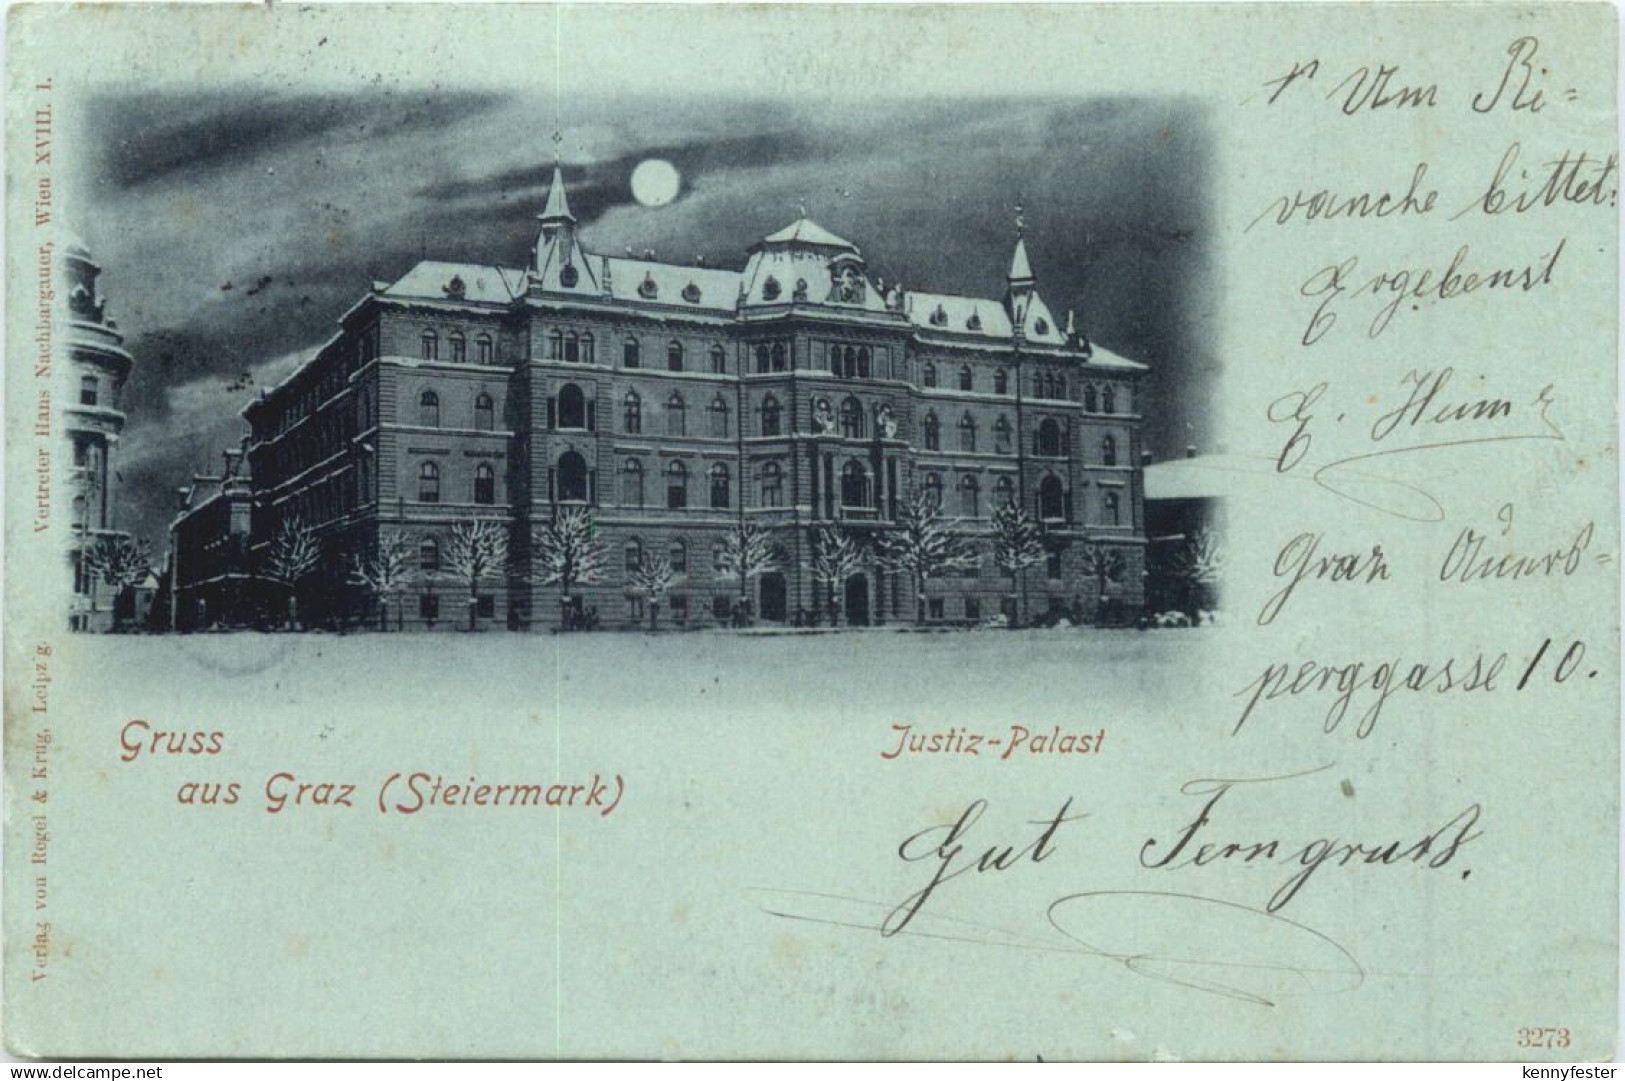 Um Ri=
vanche bittet:
Ergebenst
E. Heim
Graz Auers=
perggasse 10.
Gruss
aus Graz (Steiermark)
Justiz-Palast
Gut Ferngruß.
Verlag von Regel & Krug, Leipzig. Vertreter Hans Nachbargauer, Wien XVIII. 1.
3273
delcampe.net
kennyfester